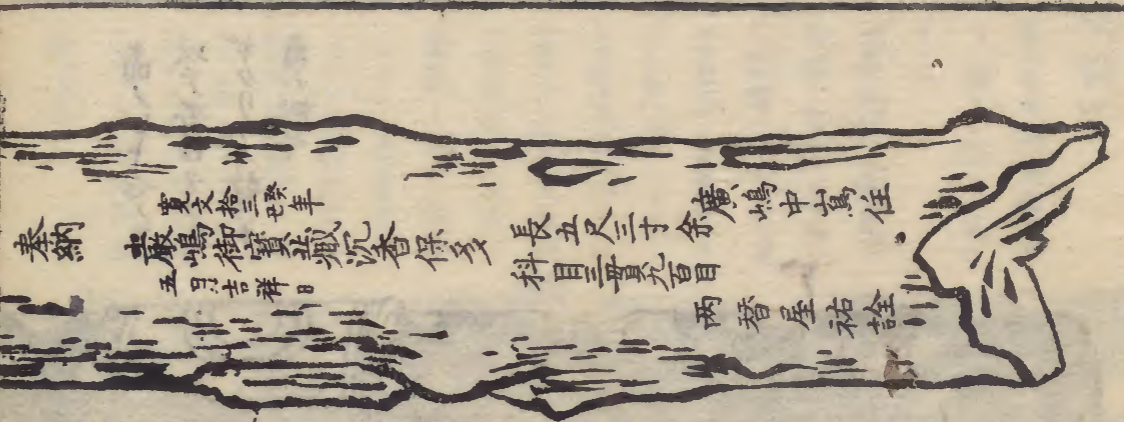 奉納
寛文拾三癸丑年
嚴嶋御寶藏沉香保多
五月吉祥日
長五尺三寸余
料目三貫九百目
廣嶋中嶌住
両替屋祐詮